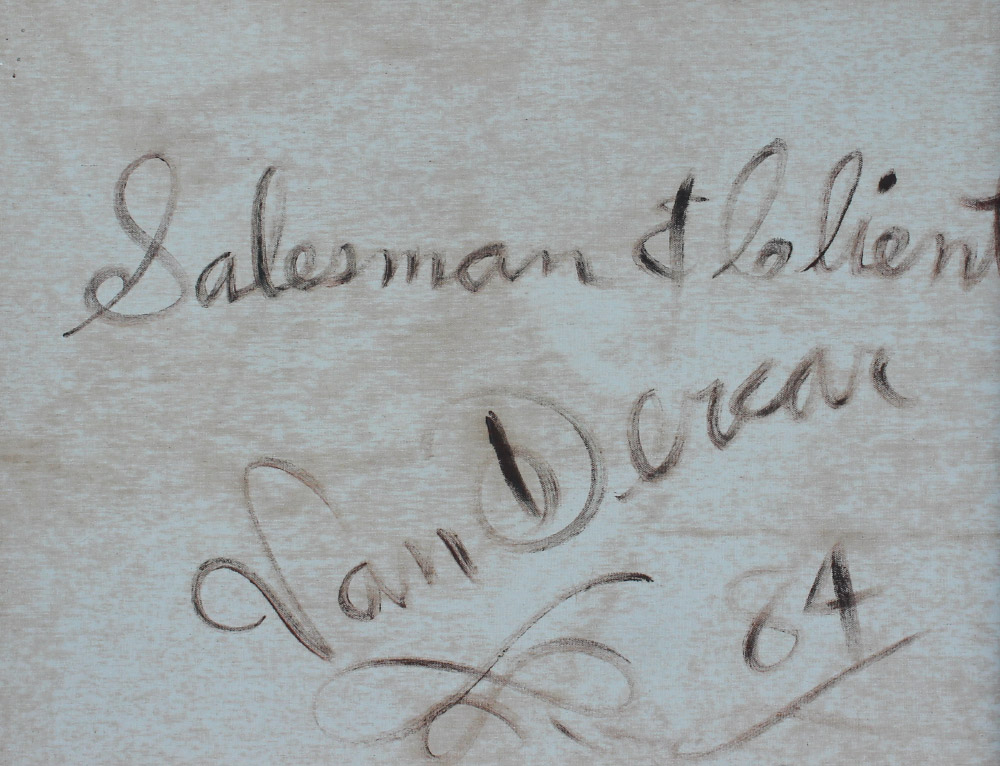 Salesman & Client
Van Dercar
84